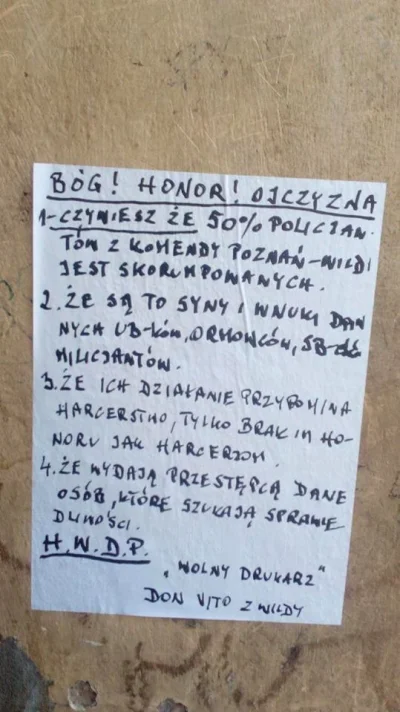 BÓG! HONOR! OJCZYZNA
1-CZYWIESZ ŻE 50% POLICJAN-
TÓW Z KOMENDY POZNAŃ-WILDA
JEST SKORUMPOWANYCH.
2. ŻE SĄ TO SYNY I WNUKI DAW
NYCH UB-ków, ORMOWCÓW, SB-ków
MILICJANTÓW.
3. ŻE ICH DZIAŁANIE PRZYPOMINA
HARCERSTWO, TYLKO BRAK IM HO-
NORU JAK HARCERZOM.
4. ŻE WYDAJĄ PRZESTĘPCĄ DANE
OSÓB, KTÓRE SZUKAJĄ SPRAWIE
DLIWOŚCI.
H.W.D.P.
"WOLNY DRUKARZ"
DON VITO Z WILDY